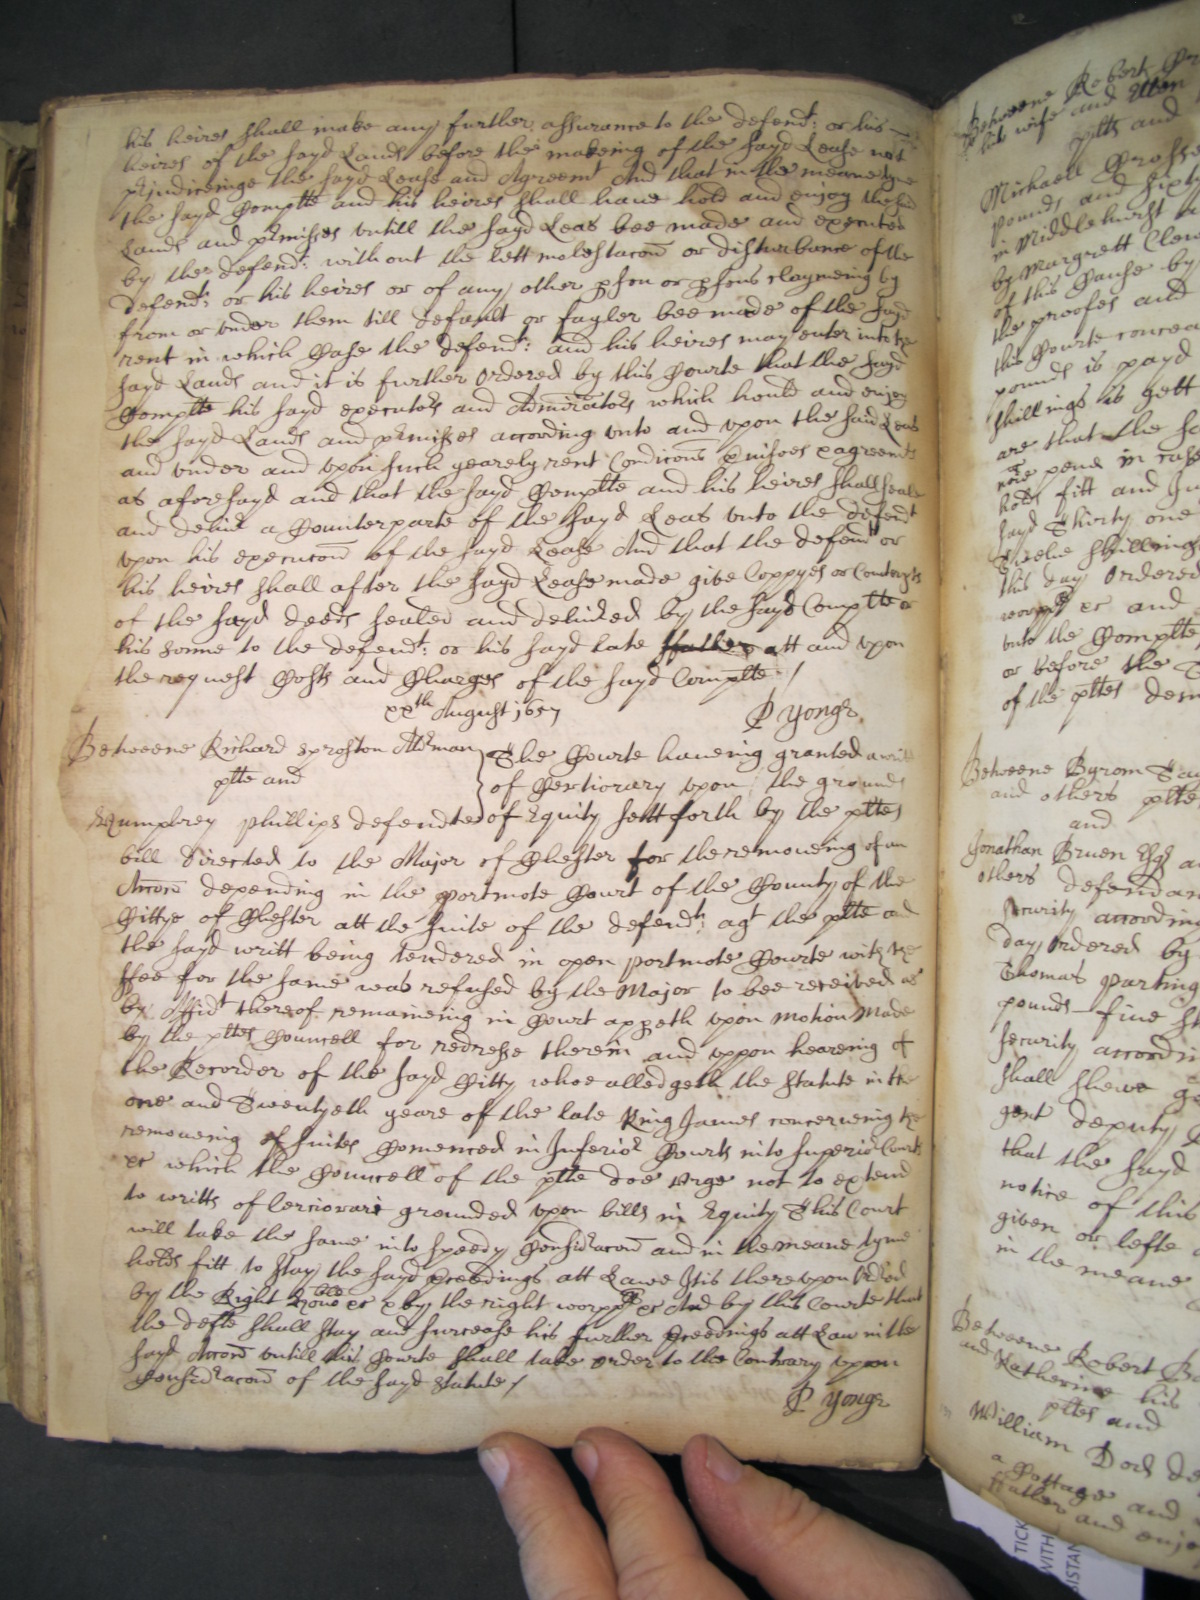 his heires shall make any further assurance to the defendt: or his
heires of the sayd Lands before the makeing of the sayd Lease not
p'judiceinge the sayd Lease and Agreemt And that in the meane tyme
the sayd Complte and his heires shall have hold and enjoy the sd
Lands and p'misses vntill the sayd Leas bee made and executed
by the defendt: without the lett molestacon or disturbance of the
defendt: or his heires or of any other pson or psons claymeing by
from or vnder them till default or fayler bee made of the sayd
rent in which Case the defendt: and his heires may enter into the
sayd Lands and it is further Ordered by this Courte that the sayd
Complte his sayd executors and Administrators which hould and enjoy
the sayd Lands and p'misses according vnto and vpon the said Leas
and vnder and vpon such yearely rent Condicons p'visoes & agreemts
as aforesayd and that the sayd Complte and his heires shall seale
and deliv'r a Counterparte of the sayd Leas vnto the defendt
vpon his execucon of the sayd Lease And that the defendt or
his heires shall after the sayd Lease made give Coppyes or Counterpts
of the sayd deeds sealed and deliv'ed by the sayd Complte or
his sonne to the defendt: or his sayd late ffather att and vpon
the request Costs and Charges of the sayd Complte /
xxth August 1657 P Yonge
Betweene Richard Sproston Alderman
plte and
Humphrey Phillips defendte
The Courte haueing granted a writt
of Certiorary vpon the grounds
of Equity sett forth by the pltes
bill directed to the Major of Chester for the remoueing of an
Accon depending in the Portmote Court of the County of the
Cittye of Chester att the suite of the defendt: agt the plte and
the sayd writt being tendered in open Portmote Courte with the
ffee for the same was refused by the Major to bee received as
by Affidt thereof remaineing in Court appeth vpon motion made
by the pltes Councell for redresse therein and vppon heareing of
the Recorder of the sayd Citty whoe alledgeth the statute in the
one and Twentyeth yeare of the late King James concerneing the
remoueing of suites Comenced in Inferior Courts into superior Courts
&c which the Councell of the plte doe vrge not to extend
to writts of Cerciorari grounded vpon bills in Equity This Court
will take the same into speedy Considracon and in the meane tyme
holds fitt to stay the sayd p'ceedings att Lawe Itis therevpon Ordred
by the Right Honoble &c & by the right worpp'll &c And by this Courte that
the defte shall stay and surcease his further p'ceedings att Law in the
sayd Accon vntill this Courte shall take order to the Contrary vppon
Considracon of the sayd statute /
P Yonge
Betweene Robert
his wife and Ellen
pltes and
Michaell
pounds and sixty
in Middlehurst
by Margrett
of this Cause by
the proofes and
this Courte
pounds is payd
shillings is
are that the
pend in
holds fitt and
sayd Thirty one
Twelve shillings
this day Ordered
&c and
vnto the Complte
or before the
of the pltes
Betweene Byrom
and others plte
and
Jonathan Bruen Esqr
others defendan
security according
day Ordered by
Thomas Parting
pounds fiue
security accordi
shall shewe
gent deputy
that the sayd
notice of this
given or lefte
in the meane
Betweene Robert
and Katherine his
pltes and
William Dod
a Cottage and
ffather and enjoy
TICK
WITH
DISTAN